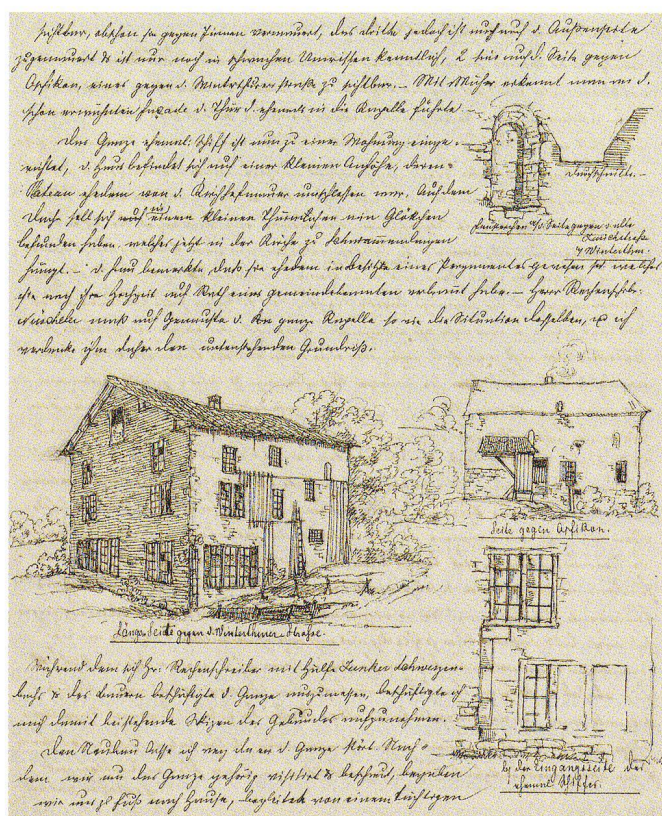 sichtbar, obschon sie gegen Innen vermauert, das dritte jedoch ist auch auf d. Außenseite
zugemauert & ist nur noch in schwachen Umrissen kenntlich, 2 sind auf d. Seite gegen
Opfikon, eines gegen d. Winterthurerstraße zu sichtbar. – Mit Mühe erkennt man an d.
schon erwähnten Façade d. Thür d. ehemals in die Kapelle führte.
Das Ganze ehemal. Schiff ist nun zu einer Wohnung einge-
richtet, d. Haus befindet sich auf einer kleinen Anhöhe, deren
Plateau ehedem von d. Kirchhofmauer umschlossen war. Auf dem
Dach soll sich auch in einem kleinen Thürmchen ein Glökchen
befunden haben, welches jetzt in der Kirche zu Schwamendingen
hängt. – d. Frau bemerkte daß sie ehedem im Besitze eines Pergamentes gewesen sei welches
sie nach ihrer Hochzeit auf Rath eines Gemeindebeamten verbrannt habe. – Herr Rechenschrbr.
Nüscheler maß auf Genauste d. ganze Kapelle so wie die Situation derselben, & ich
verdanke ihm daher den untenstehenden Grundriß.
Durchschnitt.
Fensterchen a/d. Seite gegen d. alte
Zürichstraße
n/ Winterthur.
Seite gegen Opfikon.
Längs-Seite gegen d. Winterthurer-Strasse.
Während dem sich Hr. Rechenschreiber mit Hülfe Junker Schwerzen-
bachs & des Bauern beschäftigte d. Ganze auszumessen, beschäftigte ich
mich damit beistehende Skizen des Gebäudes aufzunehmen.
Den Neubau lasse ich weg da er d. Ganze stört. Nach-
dem wir nun das Ganze gehörig visitirt & beschaut, begaben
wir uns zu Fuß nach Hause, begleitet von einem tüchtigen
b, der Eingangsseite des
ehemal. Schiffes.